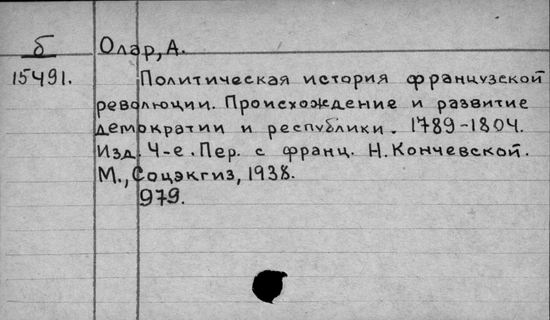 б Олар, А.
15491. Политическая история французской
революции. Происхождение и развитие
демократии и республики. 1789-1804.
Изд. 4-е. Пер. с франц. Н. Кончевской.
М., Соцэкгиз, 1938.
979.